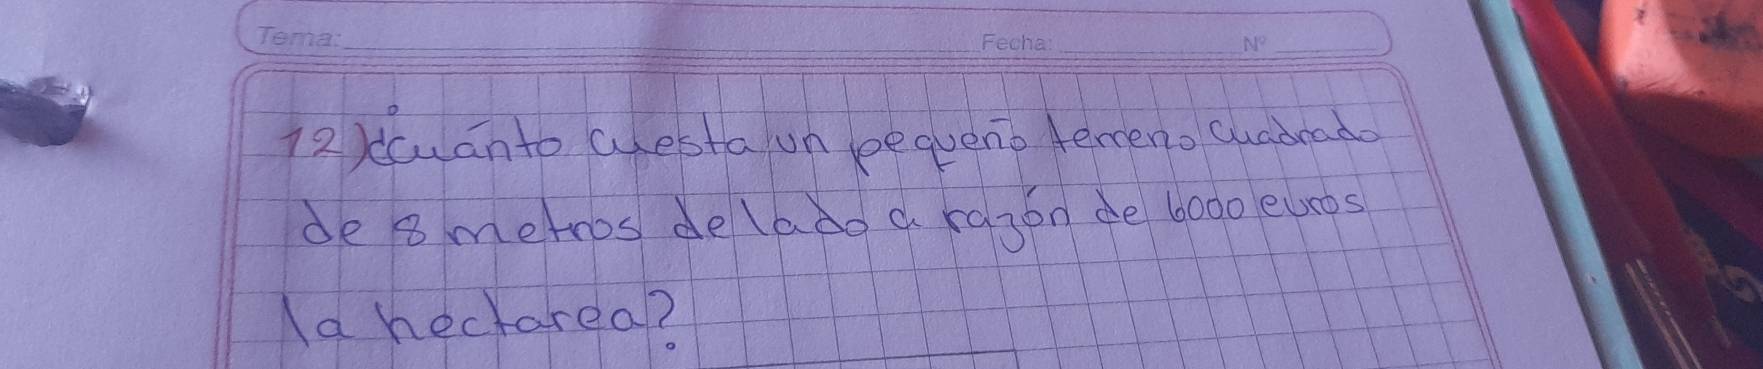 Tema: Fecha: Nº
12) ¿cuánto cuesta un pequeño terreno cuadrado
de 8 metros de lado a razón de 6000 euros
la hectarea?